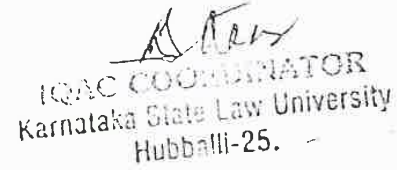 IQAC COORDINATOR
Karnataka State Law University
Hubballi-25.